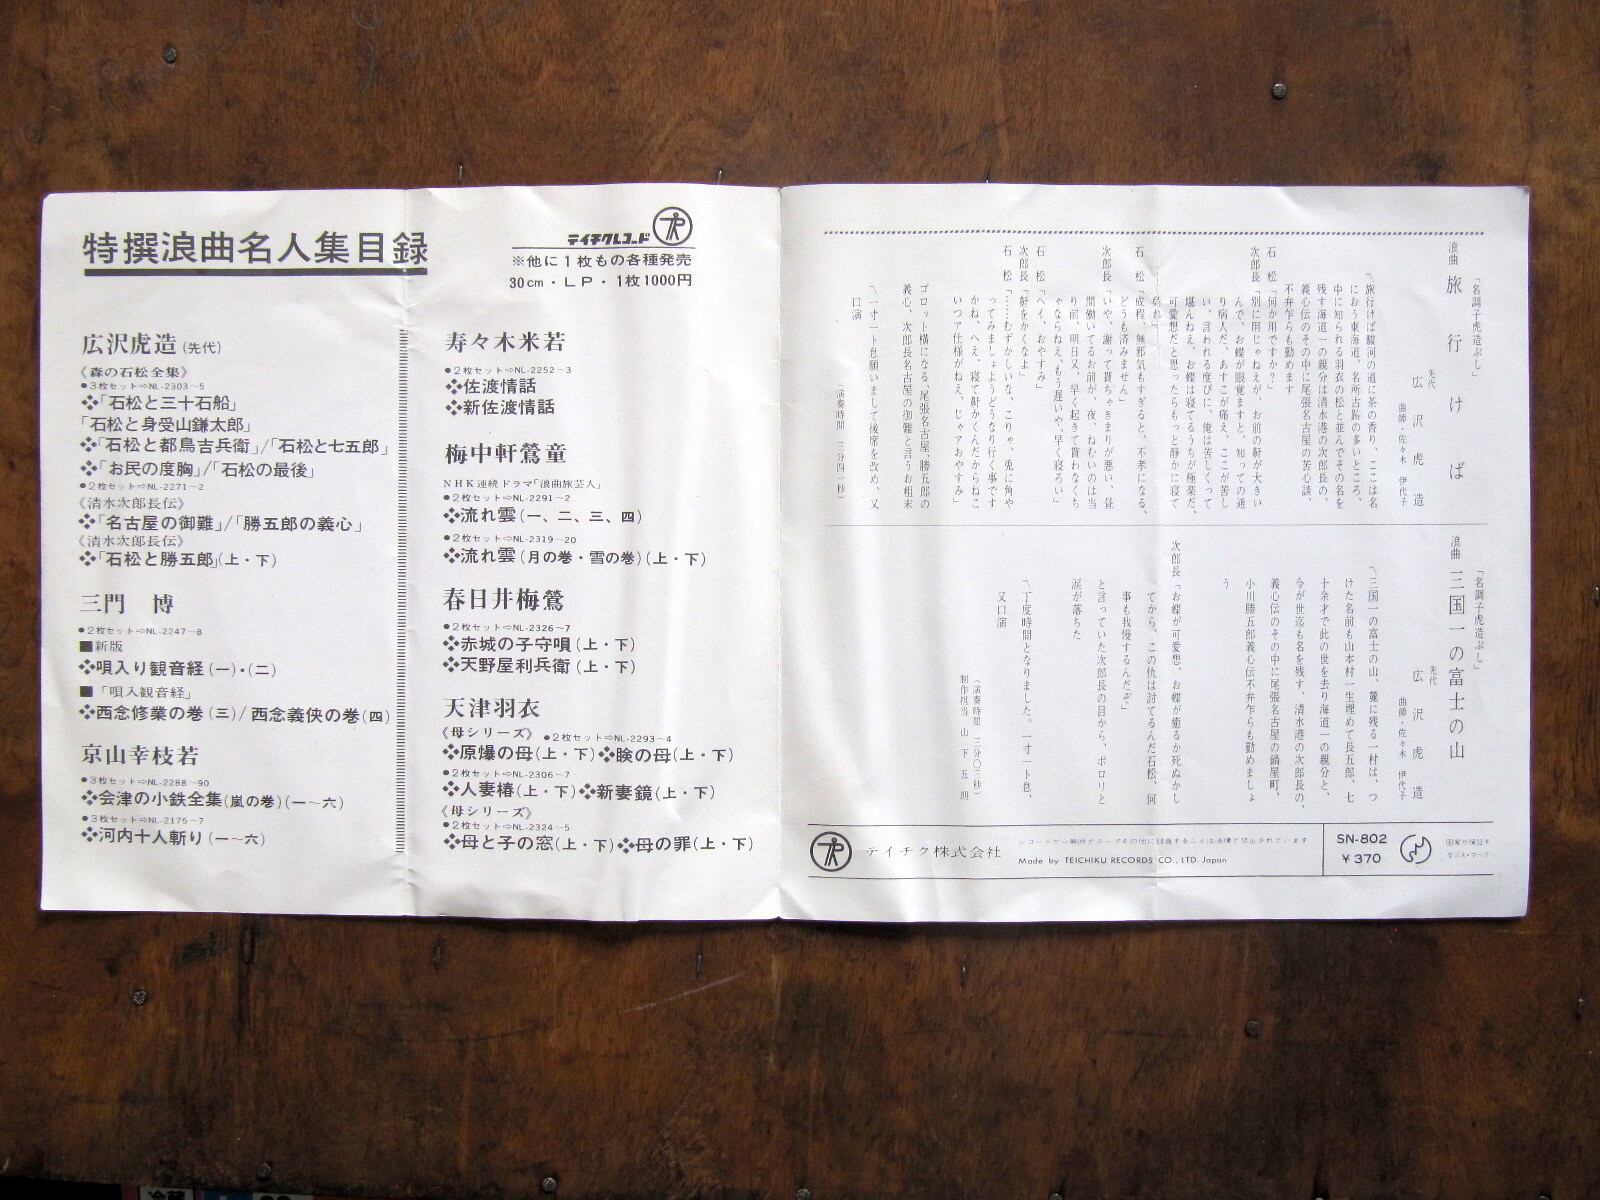 特撰浪曲名人集目録
テイチクレコード
※他に1枚もの各種発売
30cm・LP・1枚1000円
広沢虎造(先代)
《森の石松全集》
●3枚セット⇨NL-2303~5
❖「石松と三十石船」
「石松と身受山鎌太郎」
❖「石松と都鳥吉兵衛」/「石松と七五郎」
❖「お民の度胸」/「石松の最後」
●2枚セット⇨NL-2271~2
《清水次郎長伝》
❖「名古屋の御難」/「勝五郎の義心」
《清水次郎長伝》
❖「石松と勝五郎」(上・下)
三門 博
●2枚セット⇨NL-2247~8
■新版
❖唄入り観音経(一)・(二)
■「唄入観音経」
❖西念修業の巻(三)/西念義侠の巻(四)
京山幸枝若
●3枚セット⇨NL-2288~90
❖会津の小鉄全集(嵐の巻)(一~六)
●3枚セット⇨NL-2175~7
❖河内十人斬り(一~六)
寿々木米若
●2枚セット⇨NL-2252~3
❖佐渡情話
❖新佐渡情話
梅中軒鶯童
NHK連続ドラマ「浪曲旅芸人」
●2枚セット⇨NL-2291~2
❖流れ雲(一、二、三、四)
●2枚セット⇨NL-2319~20
❖流れ雲(月の巻・雪の巻)(上・下)
春日井梅鶯
●2枚セット⇨NL-2326~7
❖赤城の子守唄(上・下)
❖天野屋利兵衛(上・下)
天津羽衣
《母シリーズ》●2枚セット⇨NL-2293~4
❖原爆の母(上・下)❖瞼の母(上・下)
●2枚セット⇨NL-2306~7
❖人妻椿(上・下)❖新妻鏡(上・下)
《母シリーズ》
●2枚セット⇨NL-2324~5
❖母と子の窓(上・下)❖母の罪(上・下)
「名調子虎造ぶし」
浪曲 旅行けば
先代 広沢虎造
曲師・佐々木 伊代子
〽旅行けば駿河の道に茶の香り、ここは名
におう東海道、名所古跡の多いところ、
中に知られる羽衣の松と並んでその名を
残す海道一の親分は清水港の次郎長の、
義心伝のその中に尾張名古屋の苦心談、
不弁乍らも勤めます
石 松「何か用ですか?」
次郎長「別に用じゃねえが、お前の鼾が大きい
んで、お蝶が眼覚ますと、知っての通
り病人だ、あすこが痛え、ここが苦し
い、言われる度びに、俺は苦しくって
堪んねえ、お蝶は寝てるうちが極楽だ、
可愛想だと思ったらもっと静かに寝て
呉れ」
石 松「成程、無邪気もすぎると、不孝になる、
どうも済みません」
次郎長「いや、謝って貰ちゃきまりが悪い、昼
間働いてるお前が、夜、ねむいのは当
り前、明日又、早く起きて貰わなくち
ゃならねえ、もう遅いや、早く寝ろい」
石 松「ヘイ、おやすみ」
次郎長「鼾をかくなよ」
石 松「……むずかしいな、こりゃ、兎に角や
ってみましょよう、どうなり行く事です
かね、へえ、寝て鼾かくんだからねこ
いつァ仕様がねえ、じゃァおやすみ」
ゴロット横になる、尾張名古屋、勝五郎の
義心、次郎長名古屋の御難と言うお粗末
〽一寸一ト息願いまして後席を改め、又
口演
(演奏時間 三分四一秒)
「名調子虎造ぶし」
浪曲 三国一の富士の山
先代 広沢虎造
曲師・佐々木 伊代子
〽三国一の富士の山、麓に残る一村は、つ
けた名前も山本村一生埋めて長五郎、七
十余才で此の世を去り海道一の親分と、
今が世迄も名を残す、清水港の次郎長の、
義心伝のその中に尾張名古屋の鍋屋町、
小川勝五郎義心伝不弁乍らも勤めましょ
う
次郎長「お蝶が可愛想、お蝶が癒るか死ぬかし
てから、この仇は討てるんだ石松、何
事も我慢するんだぞ」
と言っていた次郎長の目から、ポロリと
涙が落ちた
〽丁度時間となりました。一寸一ト息、
又口演
(演奏時間 三分〇三秒)
制作担当 山下五朗
テイチク株式会社
レコードから無断でテープその他に録音することは法律で禁止されています
Made by TEICHIKU RECORDS CO., LTD. Japan
SN-802
¥370
国家が保証す
るジス・マーク
冷蔵